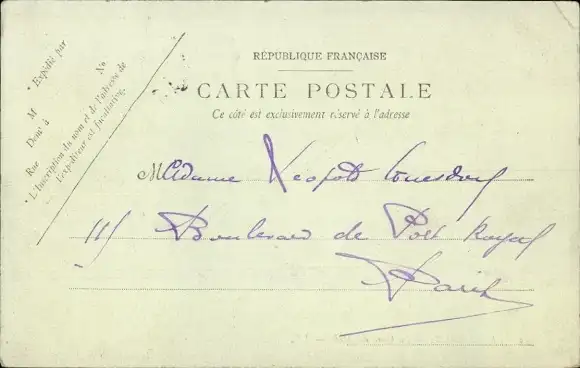 RÉPUBLIQUE FRANÇAISE
CARTE POSTALE
Ce côté est exclusivement réservé à l'adresse
Expédié par
M
N°
Demt à
Rue
L'Inscription du nom et de l'adresse de
l'expéditeur est facultative.
Madame
115 Boulevard de Port Royal
Paris